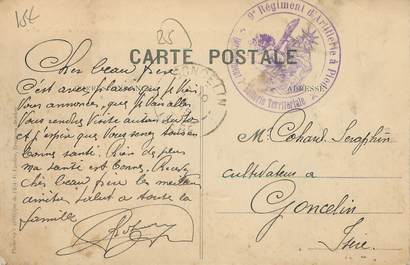 154
25
9e Régiment d'Artillerie à Pied
Batterie Territoriale
CARTE POSTALE
GONCELIN
ADRESSE
Cher beau frère
C'est avec plaisir que je viens
Vous annoncer, que je vais aller
Vous rendre visite autour du
et j'espère que Vous serez tous en
bonne santé. Rien de plus
ma santé est bonne. Recevez
cher beau frère les meilleures
amitiés Salut a toute la
famille
Mr Cohard Seraphin
cultivateur a
Goncelin
Isère